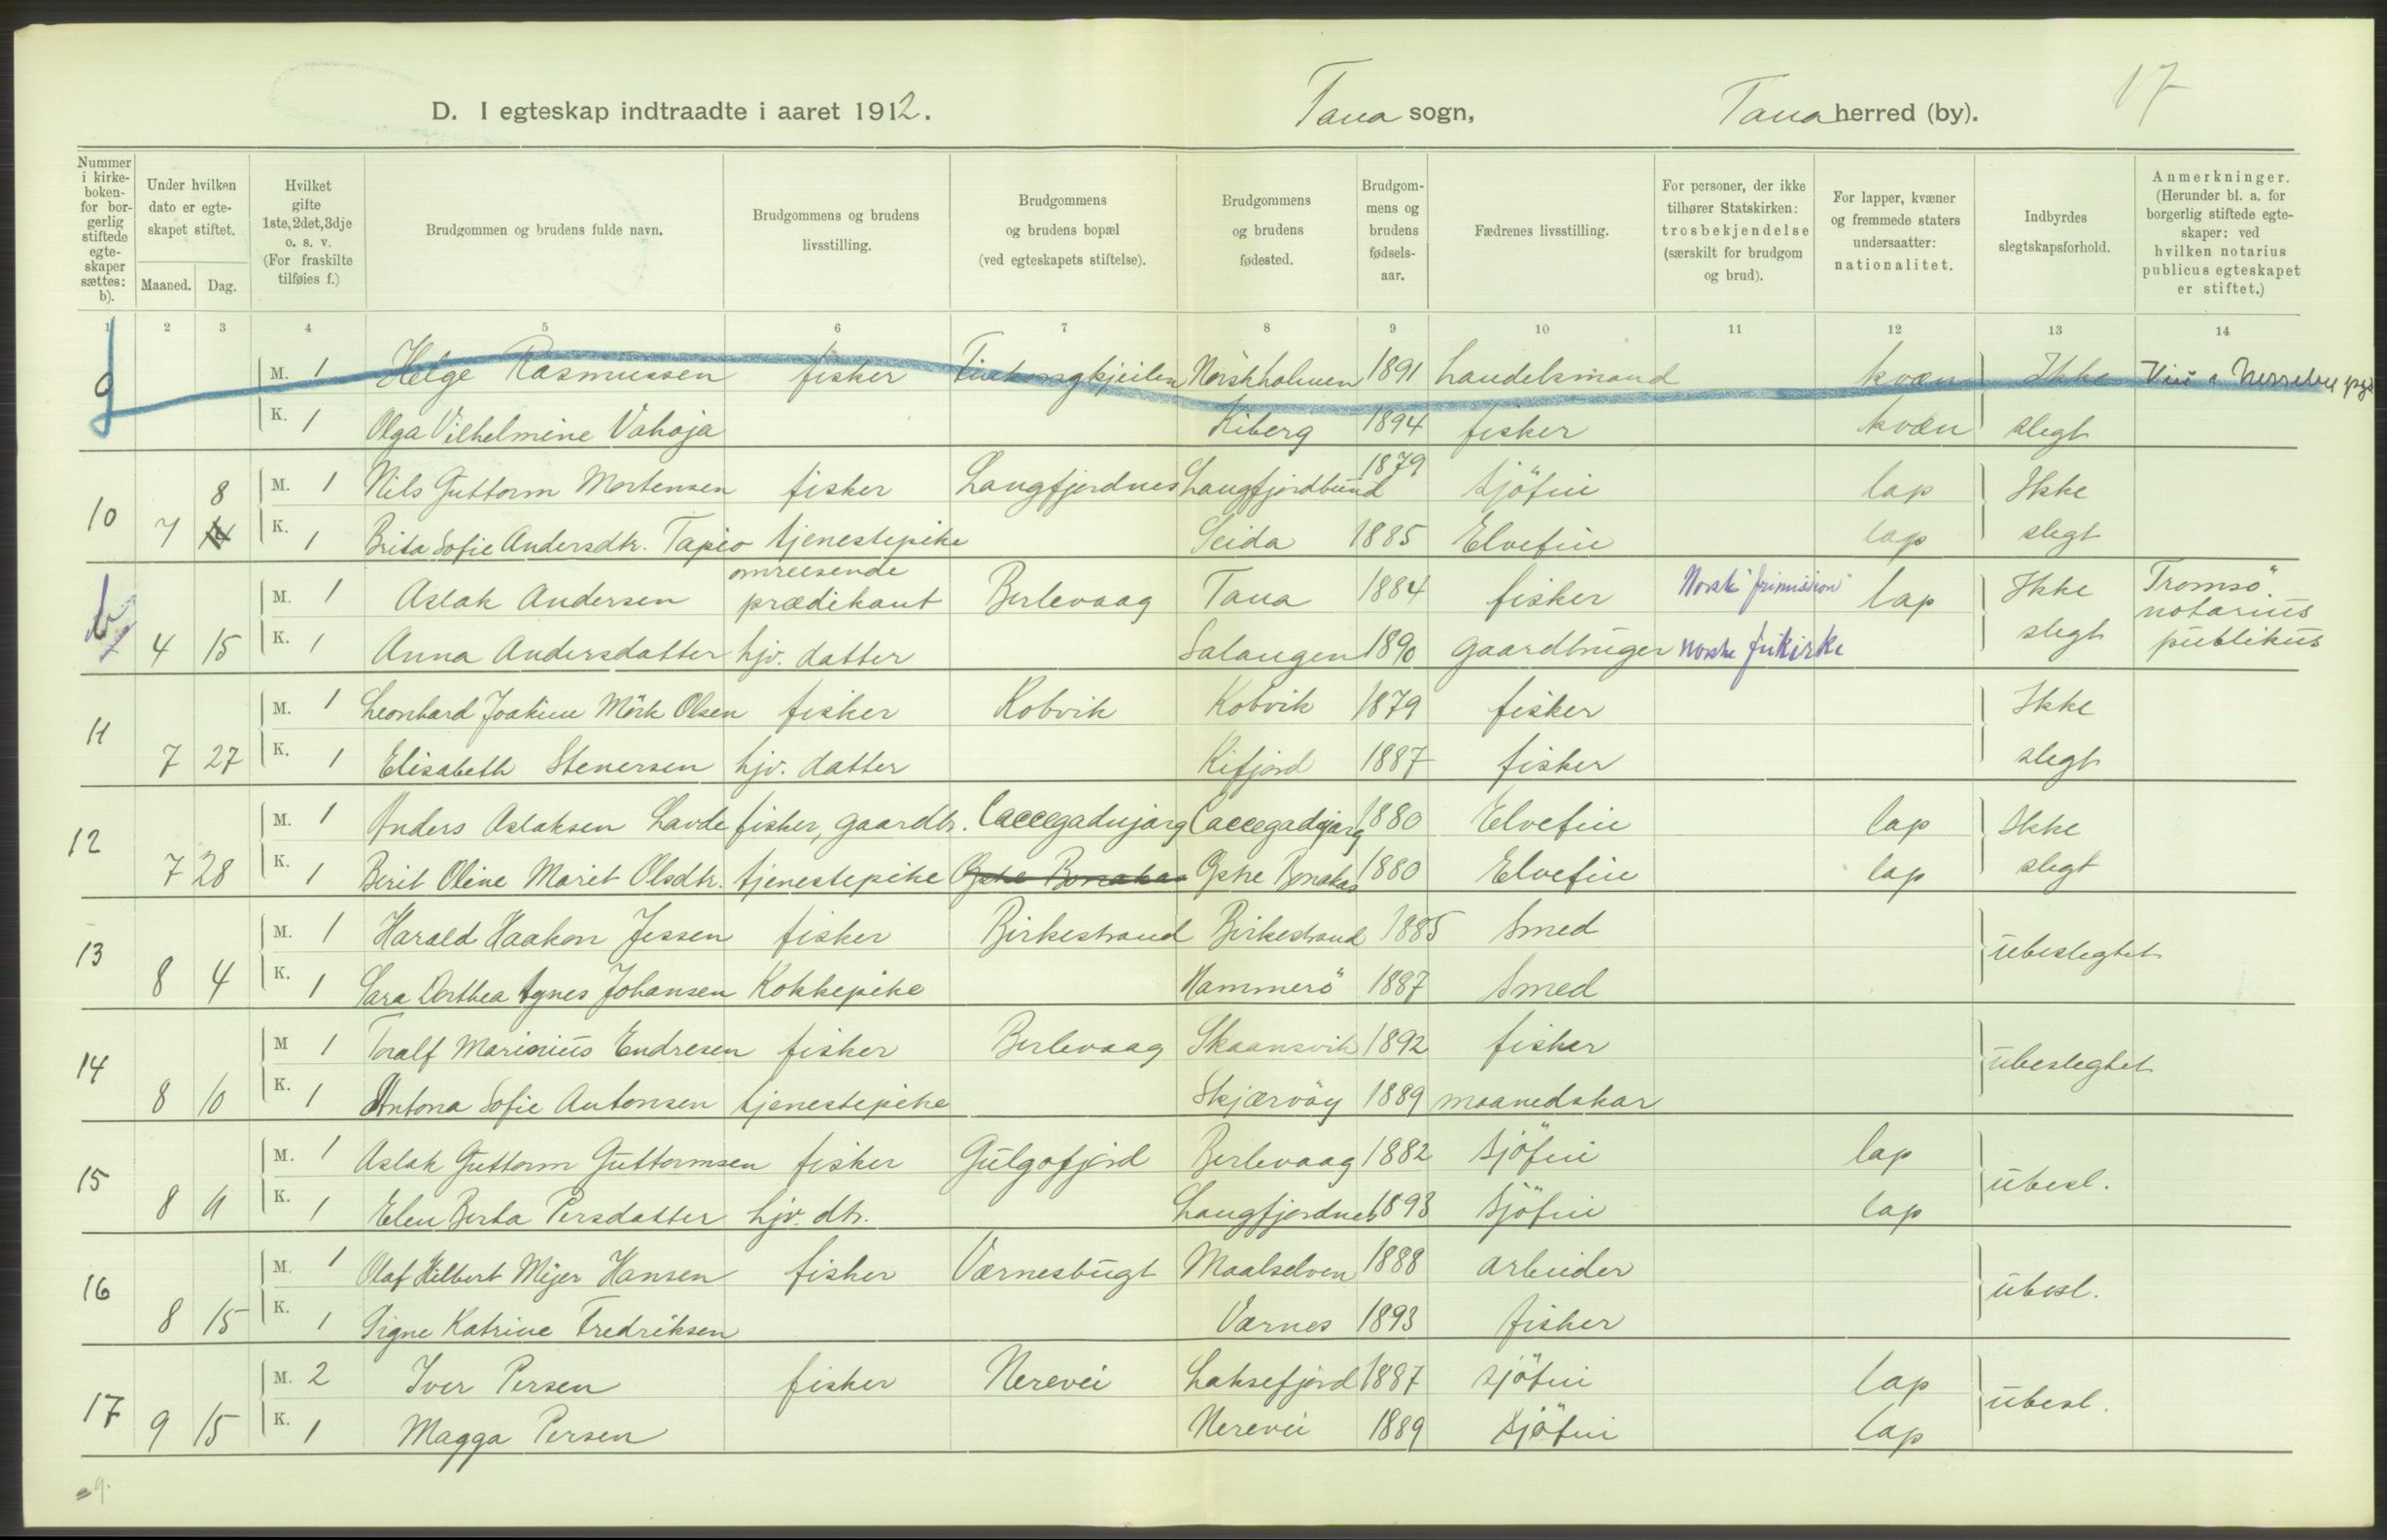 17
D. I egteskap indtraadte i aaret 1912. Tana sogn, Tana herred (by).
Nummer i kirke-boken- for bor-gerlig stiftede egte-skaper sættes: b).
Under hvilken dato er egte-skapet stiftet.
Maaned. Dag.
Hvilket gifte 1ste, 2det, 3dje o. s. v. (For fraskilte tilføies f.)
Brudgommen og brudens fulde navn.
Brudgommens og brudens livsstilling.
Brudgommens og brudens bopæl (ved egteskapets stiftelse).
Brudgommens og brudens fødested.
Brudgom-mens og brudens fødsels-aar.
Fædrenes livsstilling.
For personer, der ikke tilhører Statskirken: trosbekjendelse (særskilt for brudgom og brud).
For lapper, kvæner og fremmede staters undersaatter: nationalitet.
Indbyrdes slegtskapsforhold.
Anmerkninger. (Herunder bl. a. for borgerlig stiftede egte-skaper: ved hvilken notarius publicus egteskapet er stiftet.)
1 2 3 4 5 6 7 8 9 10 11 12 13 14
9 M. 1 Helge Rasmussen fisker Finkongkjeilen Nörskholmen 1891 handelsmand kvæn Ikke
K. 1 Olga Vilhelmine Vahoja Kiberg 1894 fisker kvæn slegt
10 8 M. 1 Nils Guttorm Mortensen fisker Langfjordnes Langfjordbund 1879 sjöfin lap Ikke
7 14 K. 1 Brita Sofie Andersdtr. Tapio tjenestepike Seida 1885 Elvefin lap slegt
b M. 1 Aslak Andersen omreisende prædikant Berlevaag Tana 1884 fisker Norsk "frimission" lap Ikke Tromsö notarius
4 15 K. 1 Anna Andersdatter hjv. datter Salangen 1890 gaardbruger norske frikirke slegt publikus
11 M. 1 Leonhard Joakim Mörk Olsen fisker Kobvik Kobvik 1879 fisker Ikke
7 27 K. 1 Elisabeth Stenersen hjv. datter Kifjord 1887 fisker slegt
12 M. 1 Anders Aslaksen Lavde fisker, gaardb. Caccegadnjarg Caccegadnjarg 1880 Elvefin lap Ikke
7 28 K. 1 Berit Oline Marit Olsdtr. tjenestepike Östre Bonakas Östre Bonakas 1880 Elvefin lap slegt
13 M. 1 Harald Haakon Jessen fisker Birkestrand Birkestrand 1885 Smed ubeslegtet
8 4 K. 1 Sara Dorthea Agnes Johansen Kokkepike Hammerö 1887 Smed
14 M 1 Toralf Marinius Endresen fisker Berlevaag Skaansvik 1892 fisker ubeslegtet
8 10 K. 1 Antona Sofie Antonsen tjenestepike Skjærvöy 1889 maanedskar
15 M. 1 Aslak Guttorm Guttormsen fisker Gulgofjord Berlevaag 1882 sjöfin lap ubesl.
8 11 K. 1 Elen Berta Persdatter hjv. dtr. Langfjordnes 1893 sjöfin lap
16 M. 1 Olaf Hilbert Mejer Hansen fisker Værnesbugt Maalselven 1888 arbeider ubesl.
8 15 K. 1 Signe Katrine Fredriksen Værnes 1893 fisker
17 M. 2 Iver Persen fisker Nerevei Laksefjord 1887 sjöfin lap ubesl.
9 15 K. 1 Magga Persen Nerevei 1889 sjöfin lap
9.